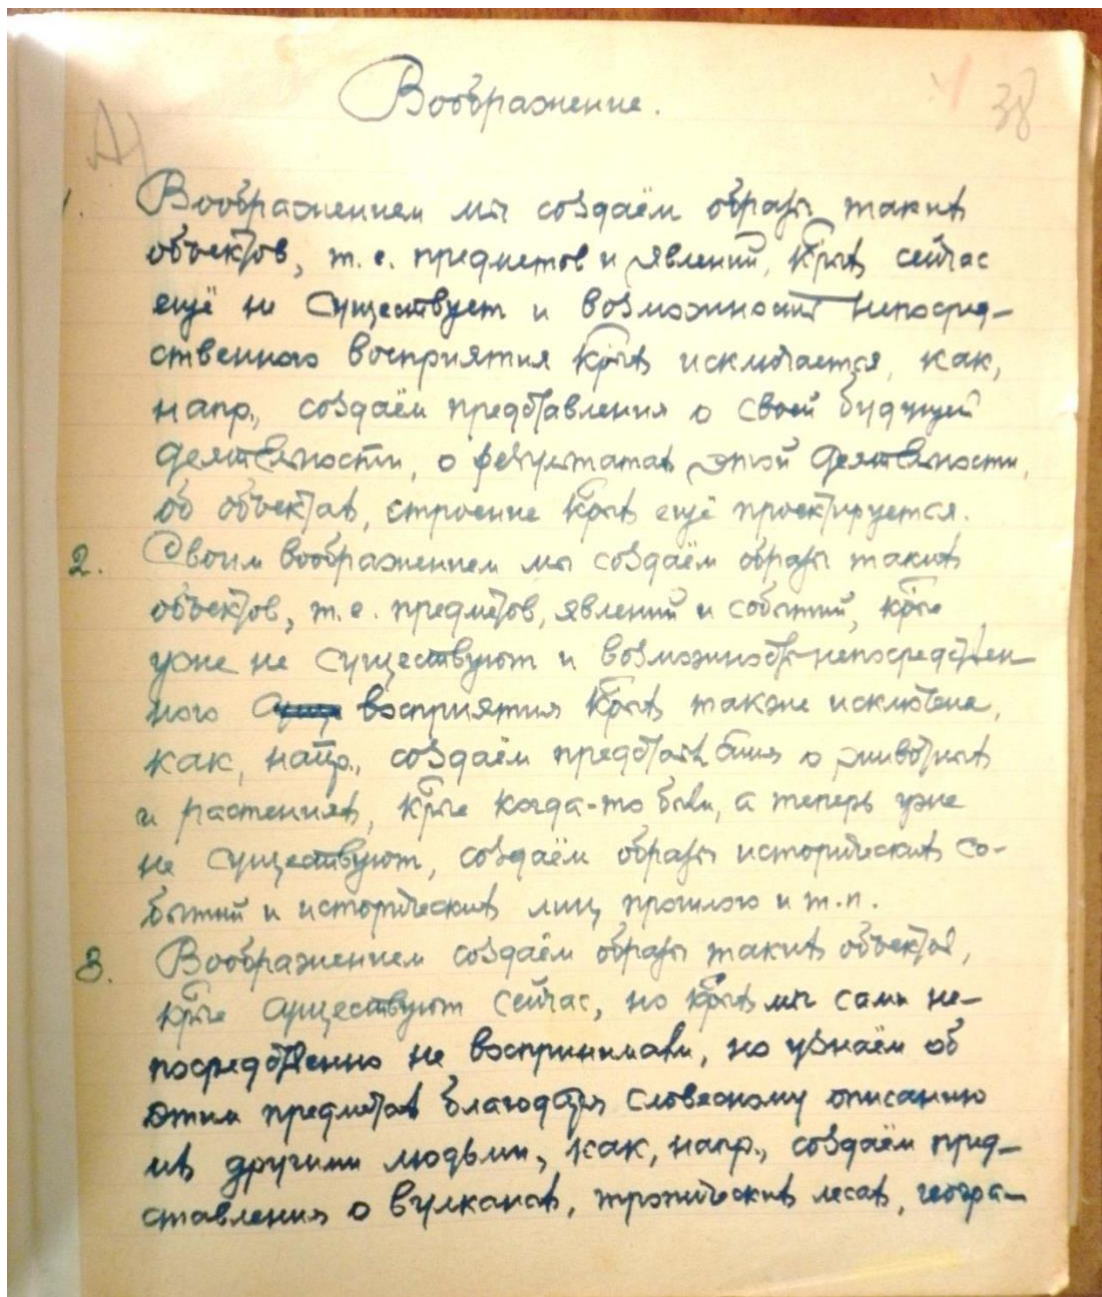 Воображение.
38
А)
1. Воображением мы создаём образы таких
объектов, т.е. предметов и явлений, кот<ор>ых сейчас
ещё не существует и возможность непосред-
ственного восприятия кот<ор>ых исключается, как,
напр., создаём представления о своей будущей
деятельности, о результатах этой деятельности,
об объектах, строение кот<ор>ых ещё проектируется.
2. Своим воображением мы создаём образы таких
объектов, т.е. предметов, явлений и событий, к<ото>рые
уже не существуют и возможность непосредствен-
ного восприятия к<ото>рых также исключена,
как, напр., создаём представления о животных
и растениях, к<ото>рые когда-то были, а теперь уже
не существуют, создаём образы исторических со-
бытий и исторических лиц прошлого и т.п.
3. Воображением создаём образы таких объектов,
к<ото>рые существуют сейчас, но к<ото>рых мы сами не-
посредственно не воспринимали, но узнаём об
этих предметах благодаря словесному описанию
их другими людьми, как, напр., создаём пред-
ставления о вулканах, тропических лесах, геогра-